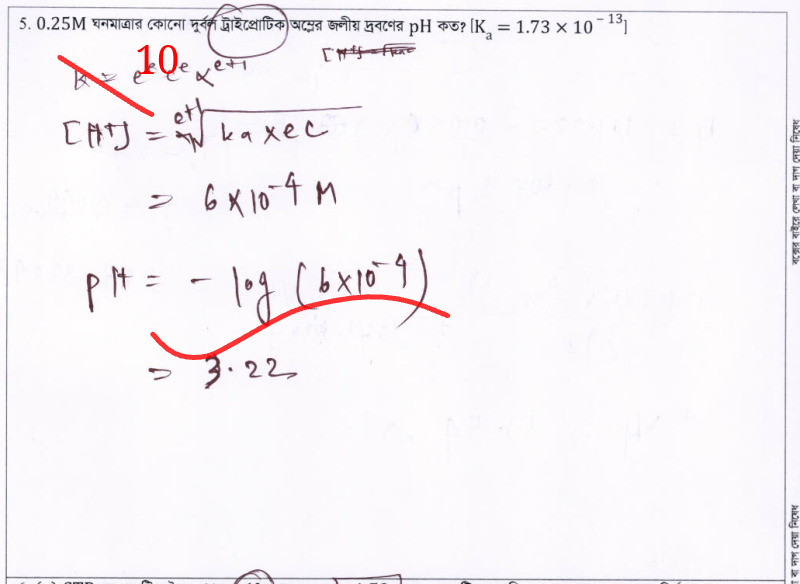 5. 0.25M ঘনমাত্রার কোনো দুর্বল ট্রাইপ্রোটিক অম্লের জলীয় দ্রবণের pH কত? [Kₐ = 1.73 × 10⁻¹³]
10
K = eᵉ cᵉ αᵉ⁺¹
[H⁺] = ᵉ⁺¹√ka×ec
= 6×10⁻⁴ M
pH = - log (6×10⁻⁴)
= 3.22
বক্সের বাইরে লেখা বা দাগ দেয়া নিষেধ
বা দাগ দেয়া নিষেধ